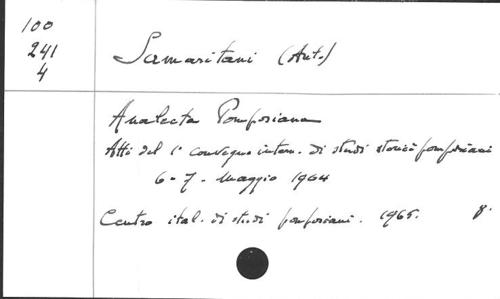 100
241
4
Samaritani (Ant.)
Analecta Pomposiana
Atti del 1° convegno intern. di studi storici pomposiani
6-7- Maggio 1964
Centro ital. di studi pomposiani. 1965. 8.